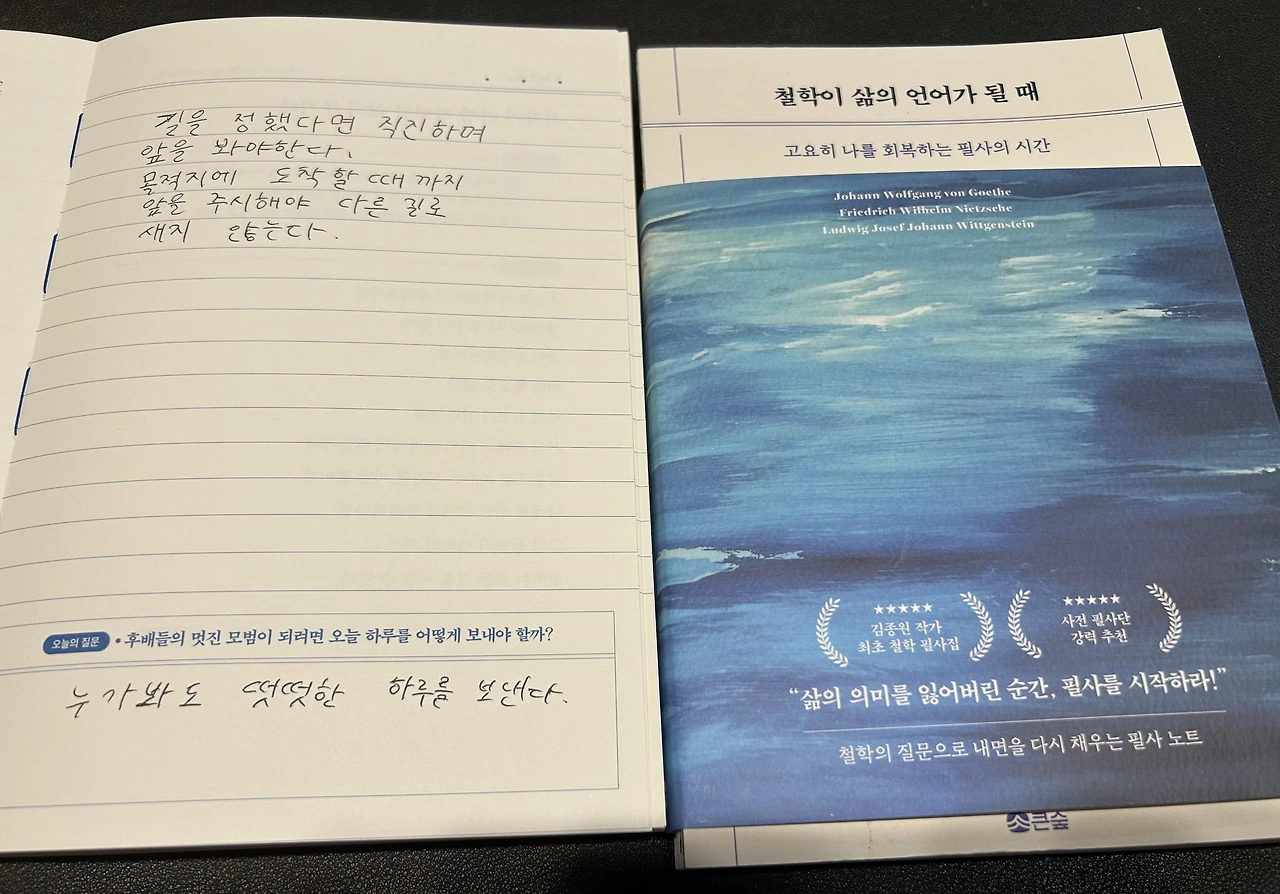 길을 정했다면 직진하며
앞을 봐야한다.
목적지에 도착할 때 까지
앞을 주시해야 다른 길로
새지 않는다.
오늘의 질문 • 후배들의 멋진 모범이 되려면 오늘 하루를 어떻게 보내야 할까?
누가봐도 떳떳한 하루를 보낸다.
철학이 삶의 언어가 될 때
고요히 나를 회복하는 필사의 시간
Johann Wolfgang von Goethe
Friedrich Wilhelm Nietzsche
Ludwig Josef Johann Wittgenstein
★★★★★
김종원 작가
최초 철학 필사집
★★★★★
사전 필사단
강력 추천
“삶의 의미를 잃어버린 순간, 필사를 시작하라!”
철학의 질문으로 내면을 다시 채우는 필사 노트
큰숲